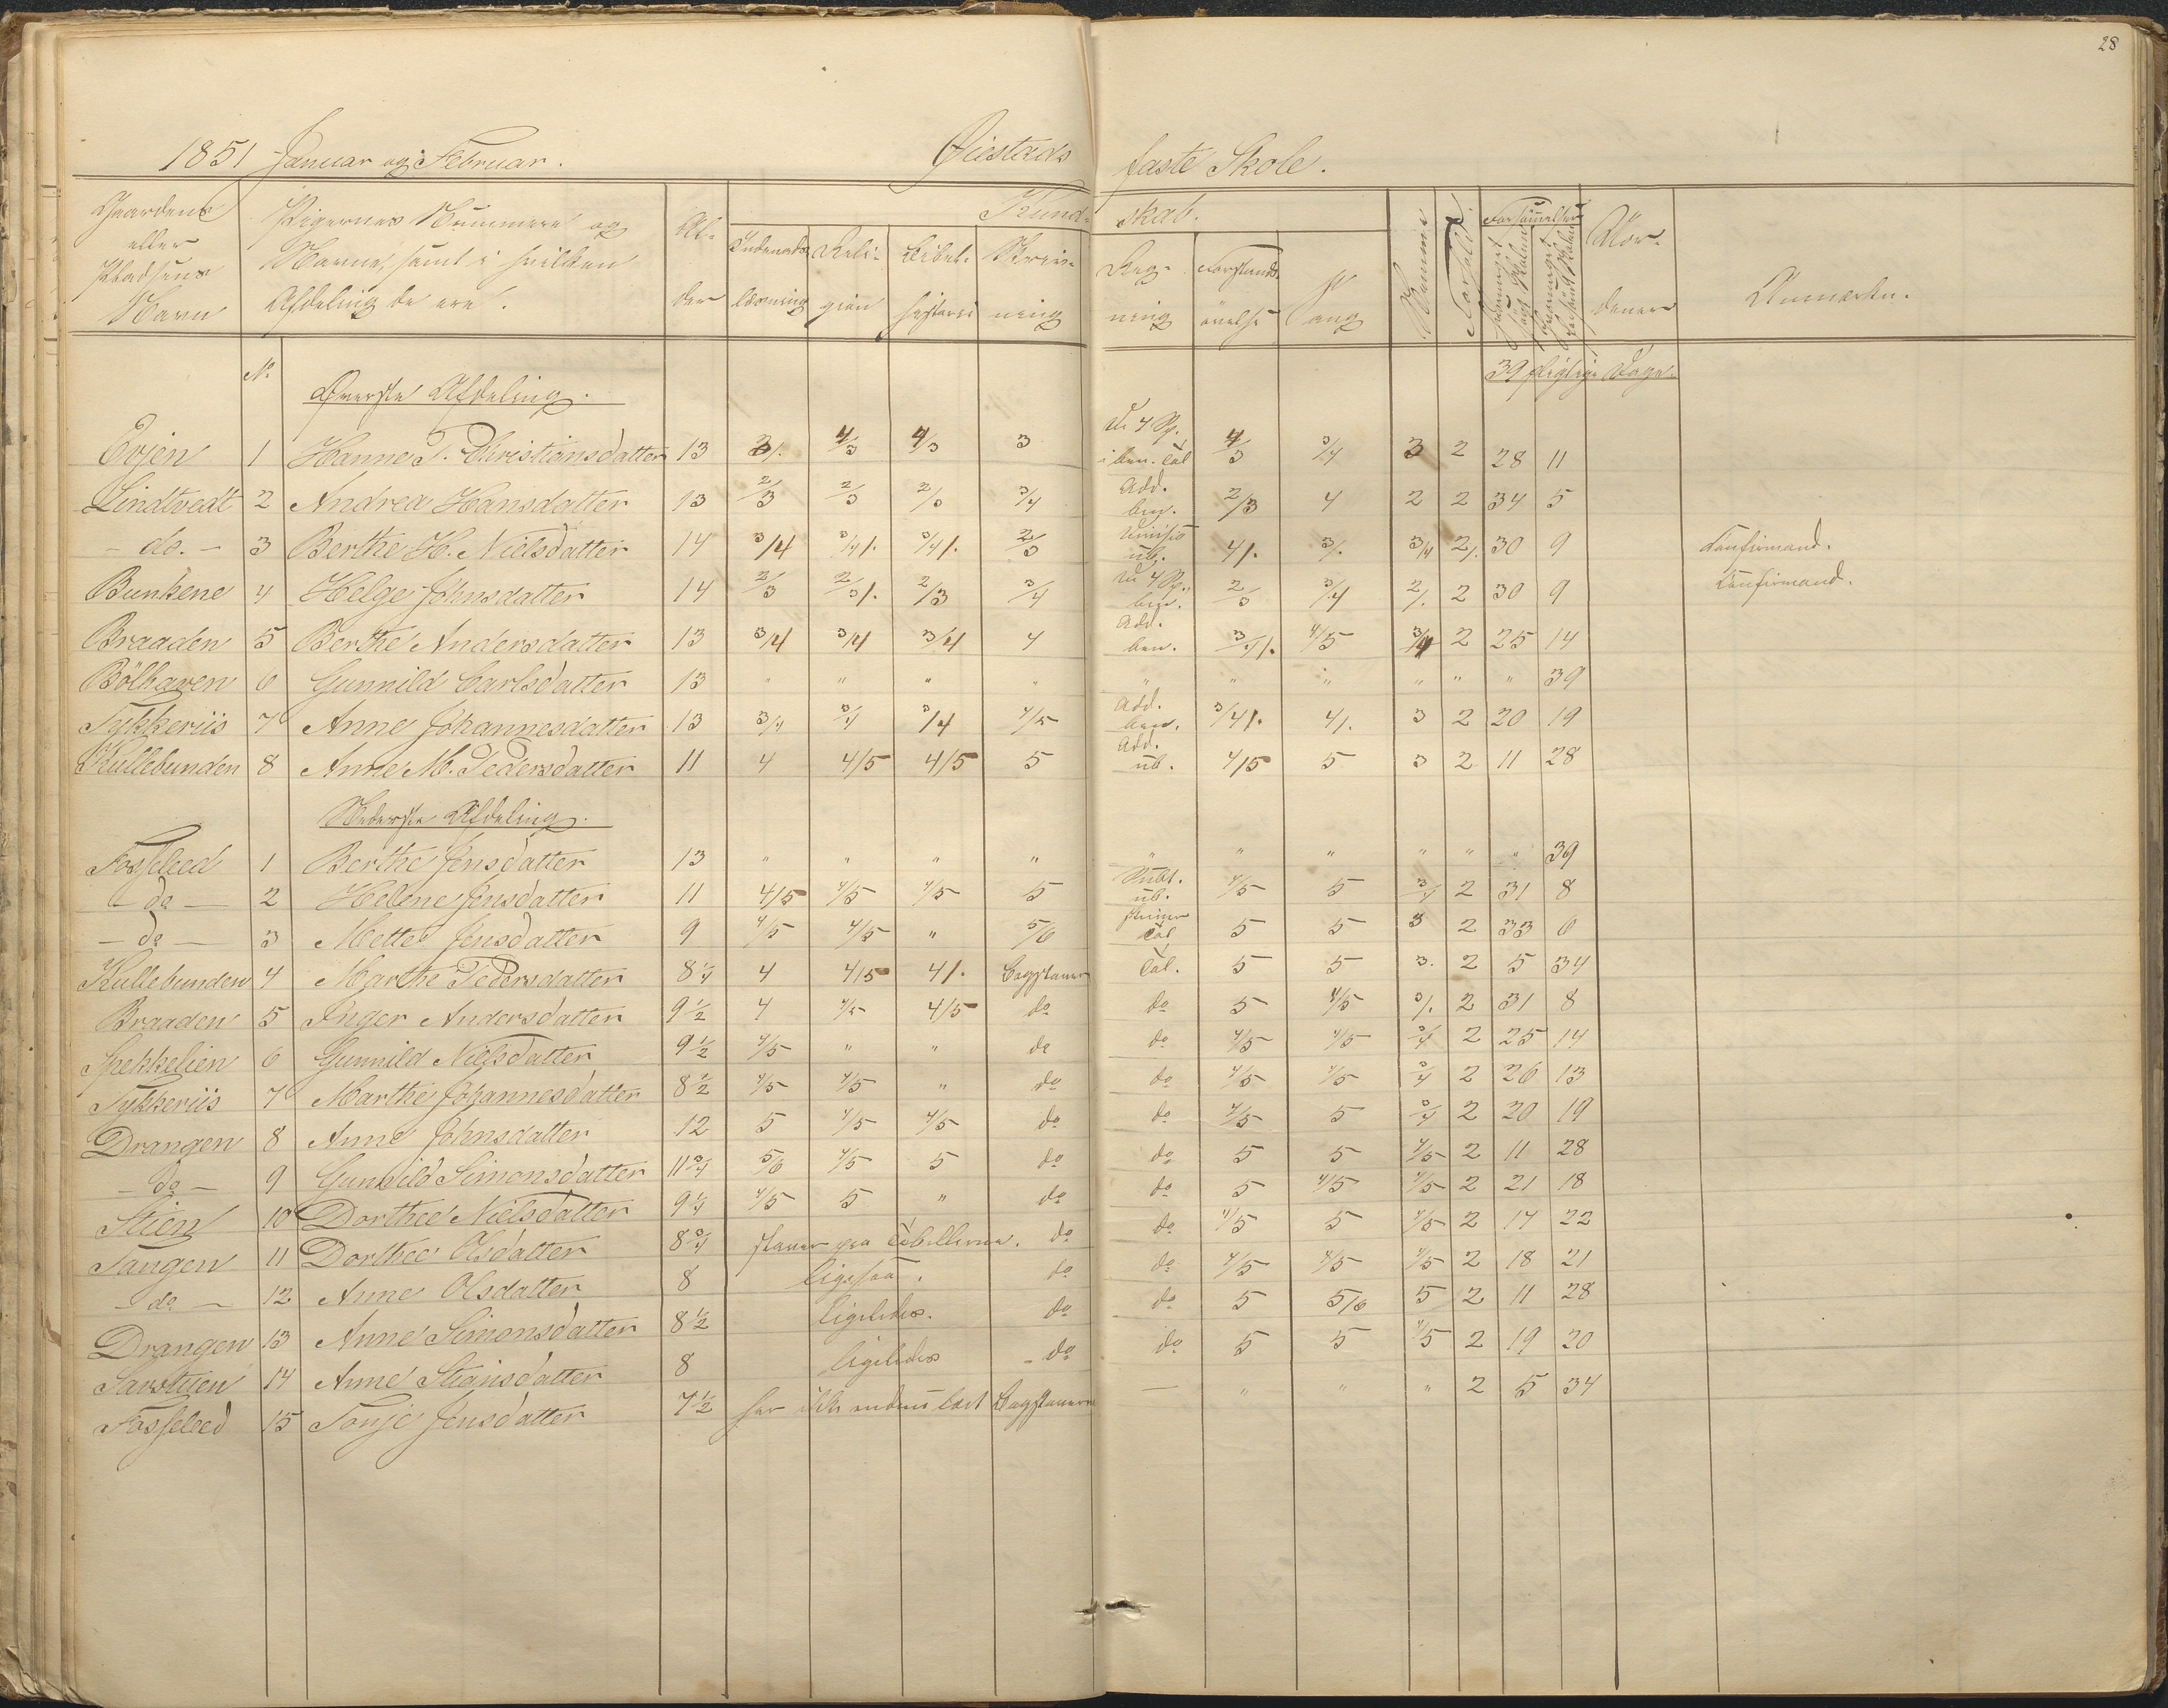 28
1851 Januar og Februar. Øiestads faste Skole.
Gaardens eller Pladsens Navn
Pigernes Nummere og Navne, samt i hvilken Afdeling de ere.
Alder
Kundskab.
Indenads læsning
Religion
Bibelhistorie
Skrivning
Regning
Forstandsøvelse
Sang
Summa
Forhold
Forsømmelser
Anmærkn.
39 pligtige Dage.
No
Øverste Afdeling.
Evjen 1 Hanne T. Christiansdatter 13 3/. 4/3 4/3 3 De 4 Sp. i ben. Tal 4/3 3/4 3 2 28 11
Lindtvedt 2 Andrea Hansdatter 13 2/3 2/3 2/3 3/4 Add. ben. 2/3 4 2 2 34 5
- do. - 3 Berthe H. Nielsdatter 14 3/4 3/4/. 3/4/. 2/3 Divisio ub. 4/. 3/. 3/4 2/. 30 9 Confirmand.
Bunkene 4 Helge Johnsdatter 14 2/3 2/3/. 2/3 3/4 De 4 Sp. ben. 2/3 3/4 2/. 2 30 9 Confirmand.
Braaden 5 Berthe Andersdatter 13 3/4 3/4 3/4 4 Add. ben. 3/4/. 4/5 3/4 2 25 14
Bölhaven 6 Gunnild Carlsdatter 13 " " " " " " " " " " 39
Tykkeriis 7 Anne Johannesdatter 13 3/4 3/4 3/4 4/5 Add. ben. 3/4/. 4/. 3 2 20 19
Kullebunden 8 Anne M. Pedersdatter 11 4 4/5 4/5 5 Add. ub. 4/5 5 3 2 11 28
Nederste Afdeling.
Fosseleed 1 Berthe Jensdatter 13 " " " " " " " " " " 39
- do - 2 Helene Jensdatter 11 4/5 4/5 4/5 5 Subt. ub. 4/5 5 3/4 2 31 8
- do - 3 Mette Jensdatter 9 4/5 4/5 " 5/6 skriver Tal 5 5 3 2 33 6
Kullebunden 4 Marthe Pedersdatter 8 1/4 4 4/5 4/. Bogstaver Tal. 5 5 3. 2 5 34
Braaden 5 Inger Andersdatter 9 1/2 4 4/5 4/5 do do 5 4/5 3/. 2 31 8
Spekkelien 6 Gunnild Nielsdatter 9 1/2 4/5 " " do do 4/5 4/5 3/4 2 25 14
Tykkeriis 7 Marthe Johannesdatter 8 1/2 4/5 4/5 " do do 4/5 4/5 3/4 2 26 13
Drangen 8 Anne Johnsdatter 12 5 4/5 4/5 do do 4/5 5 3/4 2 20 19
- do - 9 Gunnild Simonsdatter 11 3/4 5/6 4/5 5 do do 5 5 4/5 2 11 28
Stien 10 Dorthee Nielsdatter 9 1/4 4/5 5 " do do 5 4/5 4/5 2 21 18
Tangen 11 Dorthee Olsdatter 8 3/4 staver paa Tabellerne. do do 4/5 5 4/5 2 17 22
- do - 12 Anne Olsdatter 8 ligesaa. do do 4/5 4/5 4/5 2 18 21
Drangen 13 Anne Simonsdatter 8 1/2 ligeledes. do do 5 5/6 5 2 11 28
14 Anne Stiansdatter 8 ligeledes - do do 5 5 4/5 2 19 20
Fosseleed 15 Tonje Jensdatter 7 1/2 har ikke endnu lært Bogstaverne — " " " 2 5 34